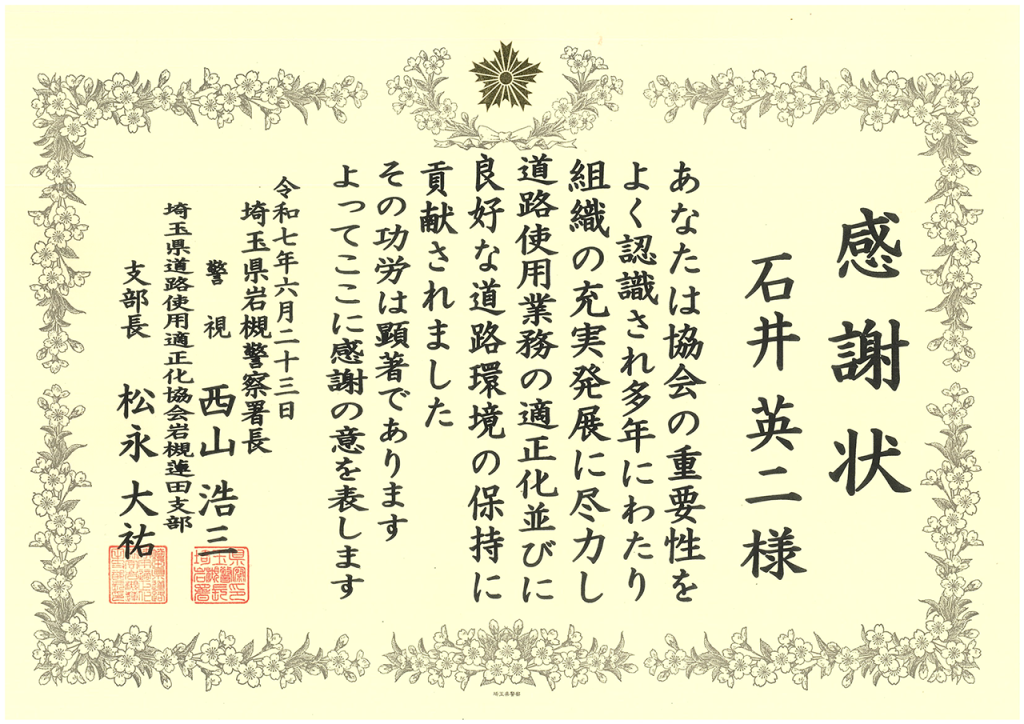 感謝状
石井英二様
あなたは協会の重要性を
よく認識され多年にわたり
組織の充実発展に尽力し
道路使用業務の適正化並びに
良好な道路環境の保持に
貢献されました
その功労は顕著であります
よってここに感謝の意を表します
令和七年六月二十三日
埼玉県岩槻警察署長
警視 西山浩三
埼玉県道路使用適正化協会岩槻蓮田支部
支部長 松永大祐
埼玉県警察